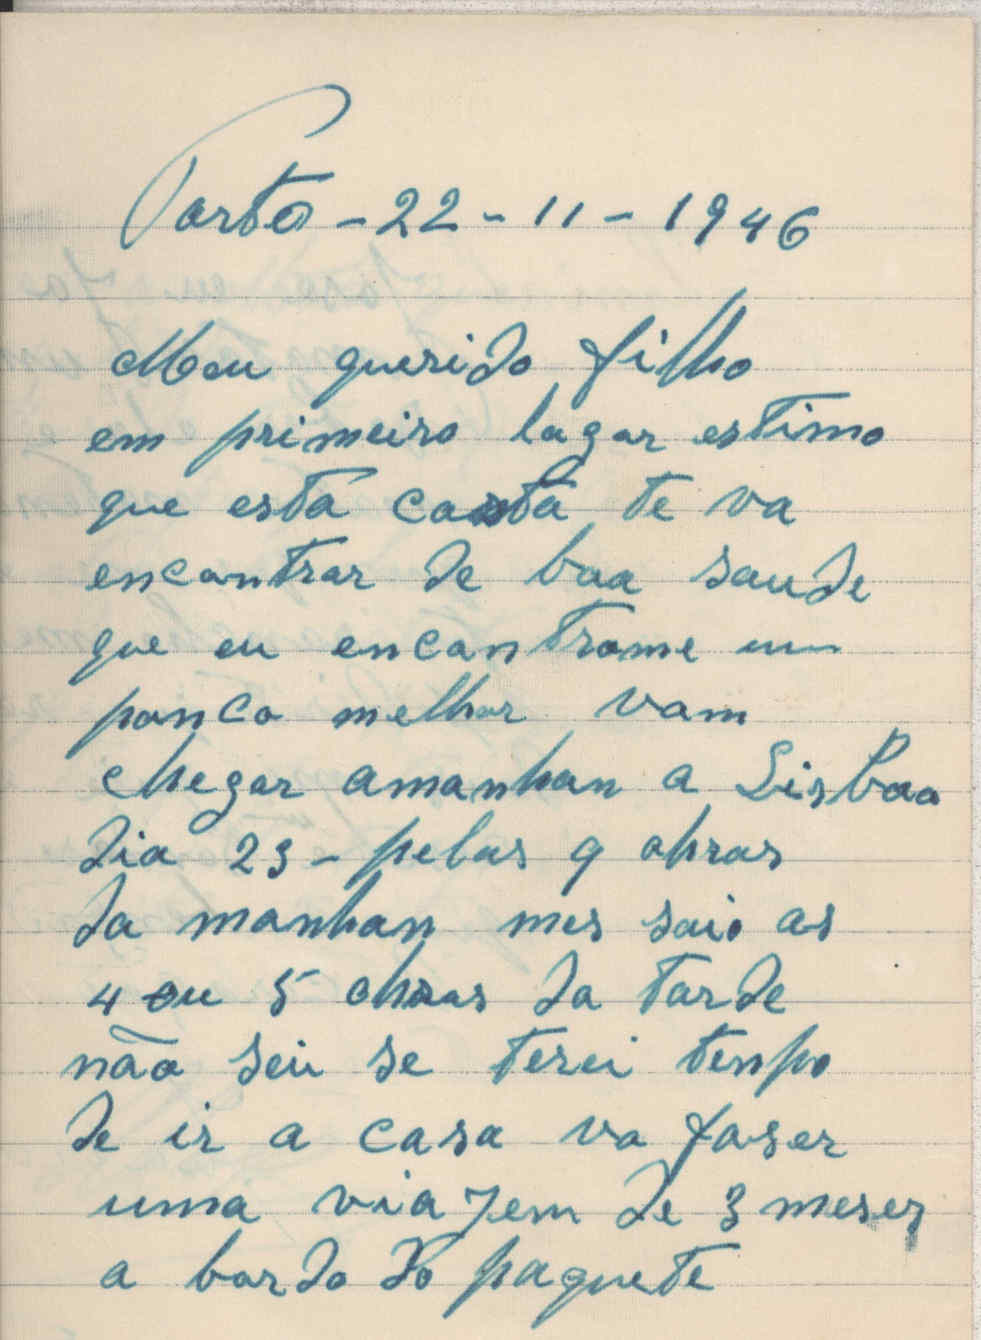 Porto - 22 - 11 - 1946
Meu querido filho
em primeiro lugar estimo
que esta carta te va
encontrar de boa saude
que eu encontrome um
pouco melhor vam
chegar amanhan a Lisboa
dia 23 - pelas 9 ohras
da manhan mes saio as
4 ou 5 ohras da tarde
não sei se terei tenpo
de ir a casa vo faser
uma viajem de 3 meses
a bordo do paquete